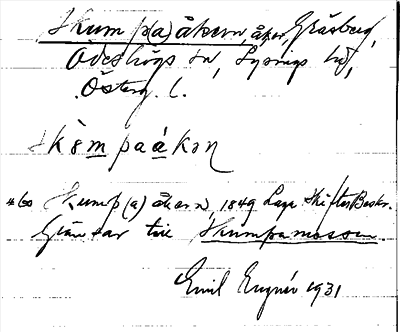 Skump(a)åkern, åker, Gräsberg,
Ödeshögs sn, Lysings hd,
Österg. l.
skèmpaákən
*60 Skump(a)åkern, 1849 Laga Skiftes Beskr.
Gränsar till Skumpamossen.
Emil 1931